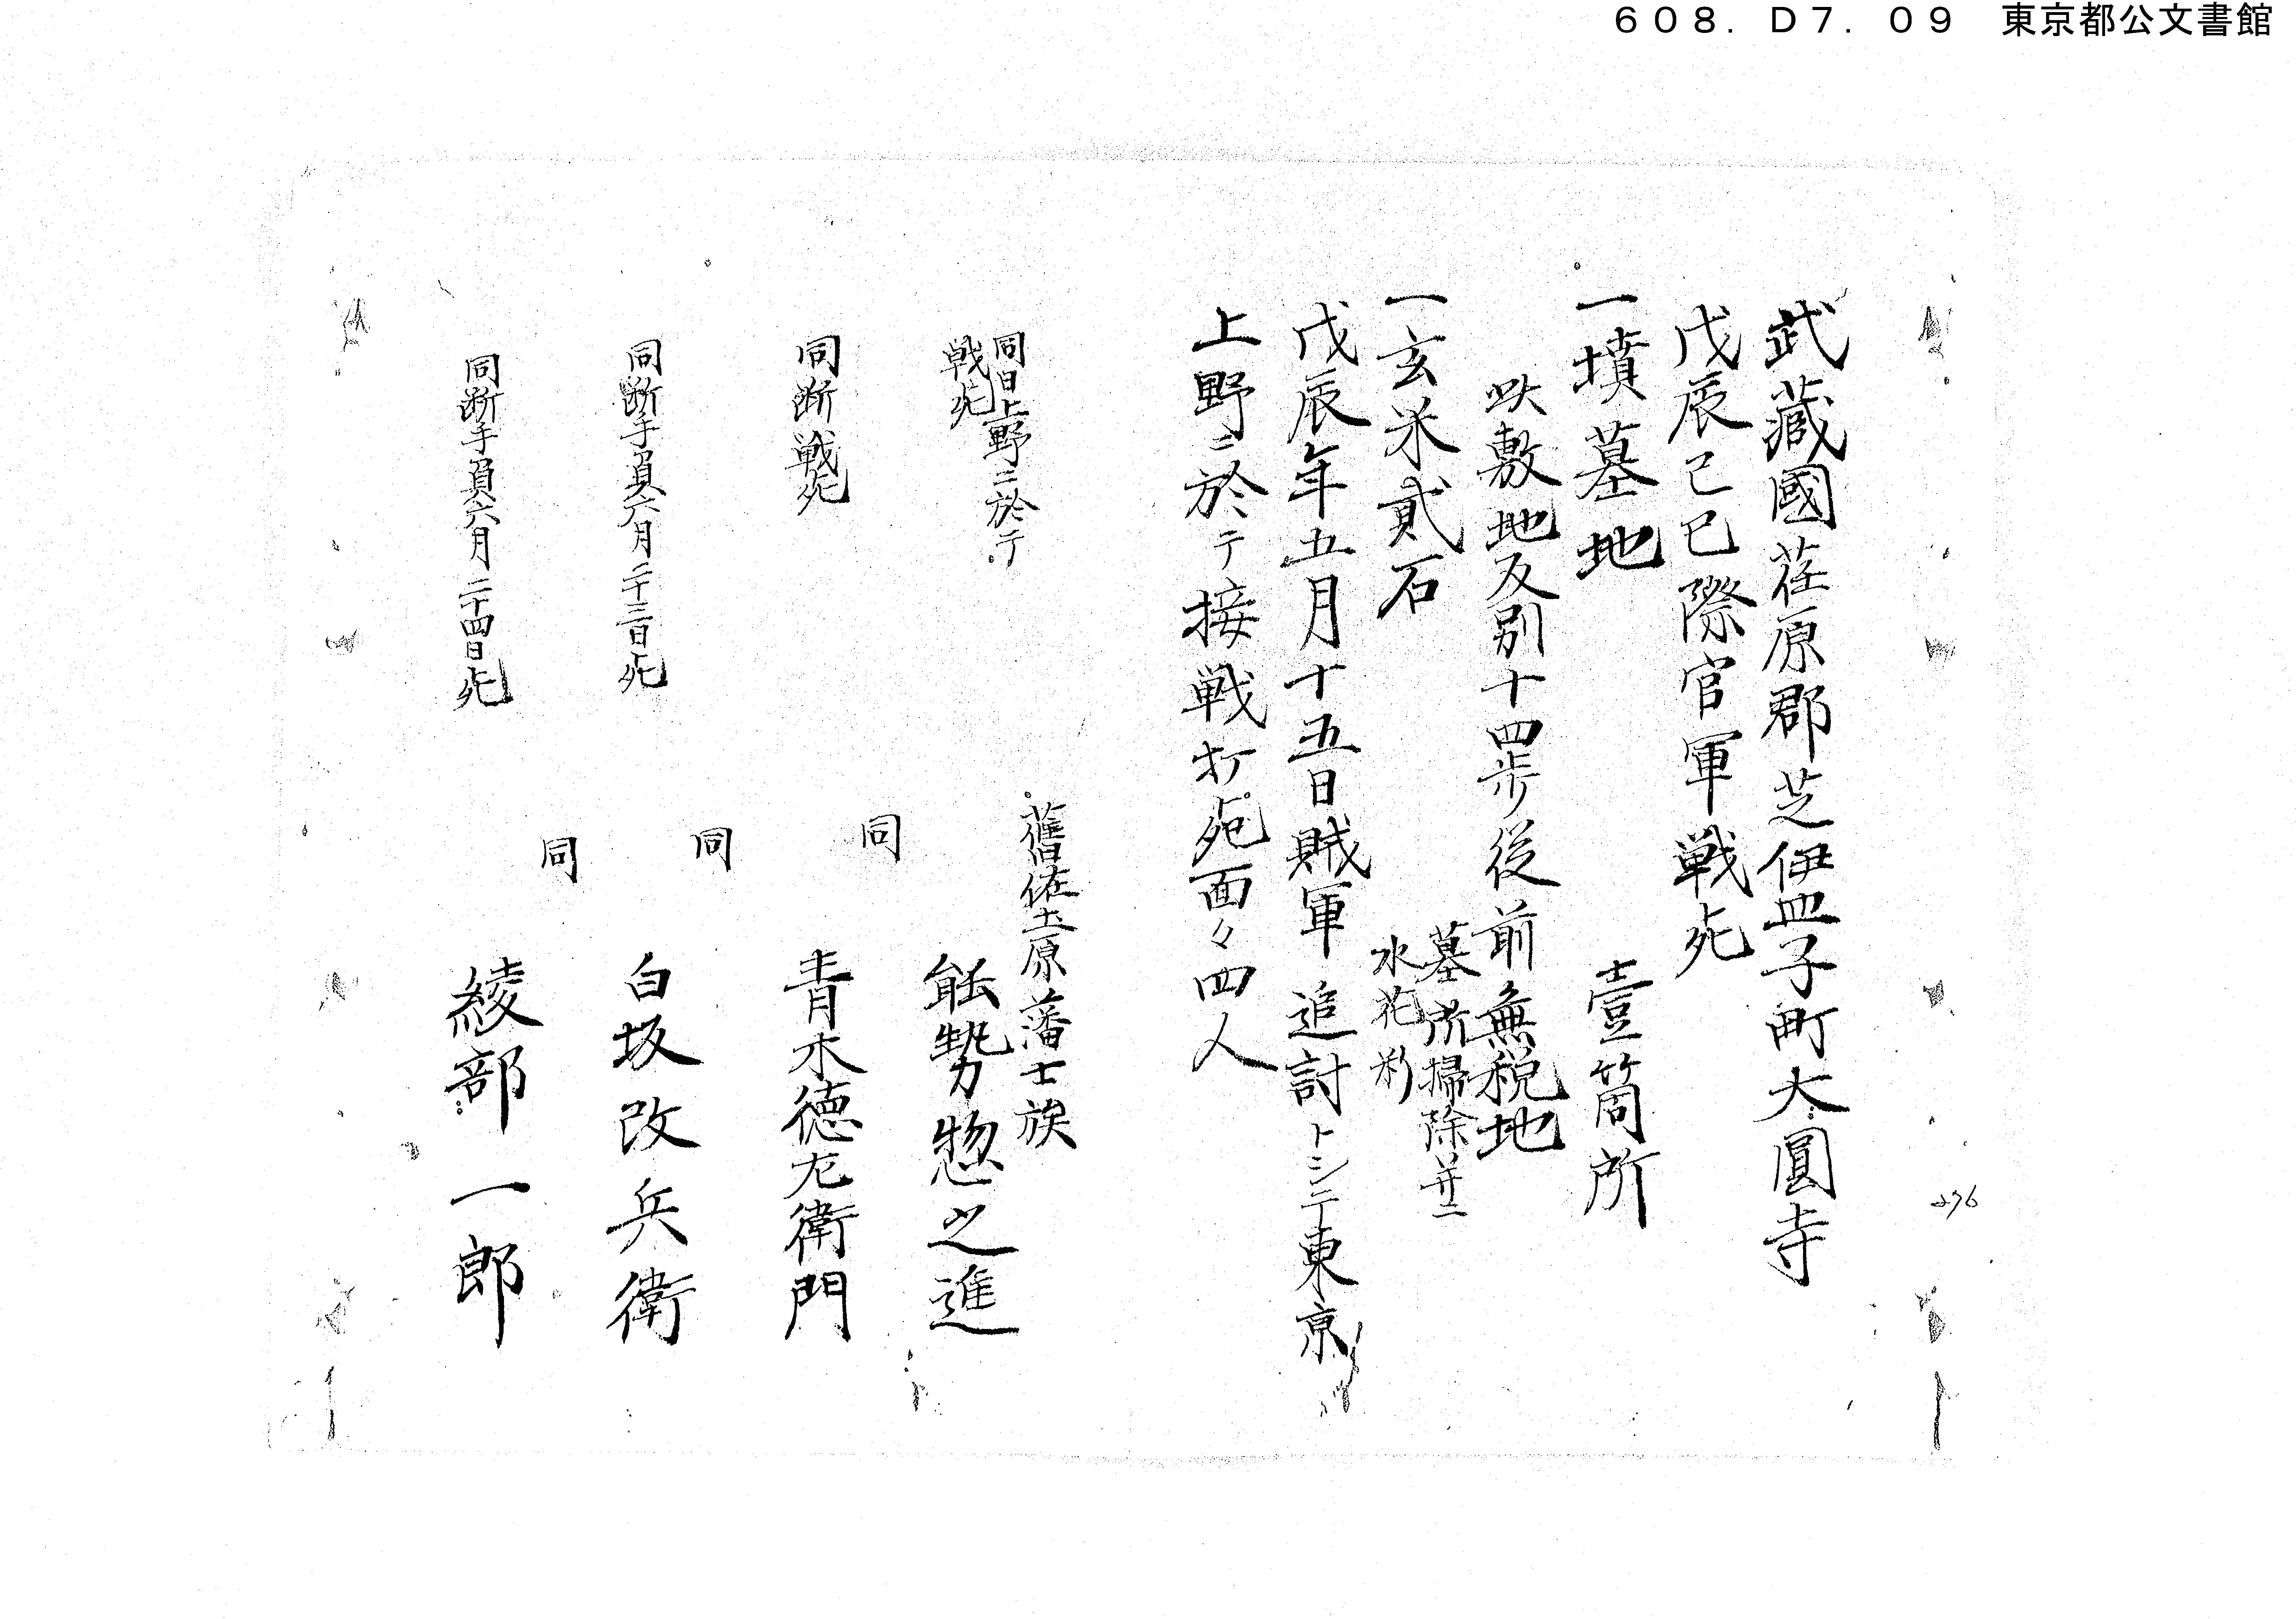 608. D7. 09 東京都公文書館
武藏國荏原郡芝伊皿子町大圓寺
戊辰己巳際官軍戦死
一墳墓地 壹箇所
此敷地反別十四歩従前無税地
一玄米貳石
墓所掃除并ニ
水花料
戊辰年五月十五日賊軍追討トシテ東京
上野ニ於テ接戦打死面々四人
舊佐土原藩士族
同日上野ニ於テ
戦死
能勢惣之進
同
同断戦死
青木徳左衛門
同
同断手負六月二十三日死
白坂改兵衛
同
同断手負六月二十四日死
綾部一郎
276